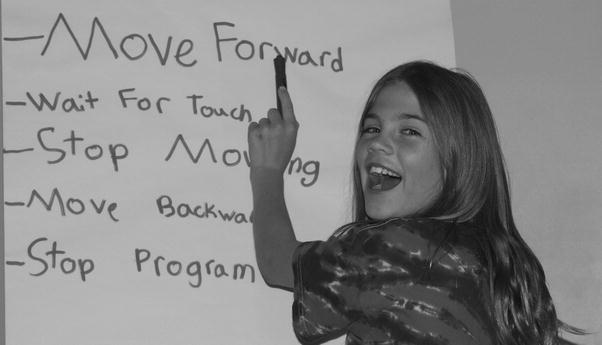 -Move Forward
-Wait For Touch
-Stop Moving
-Move Backwa
-Stop Program